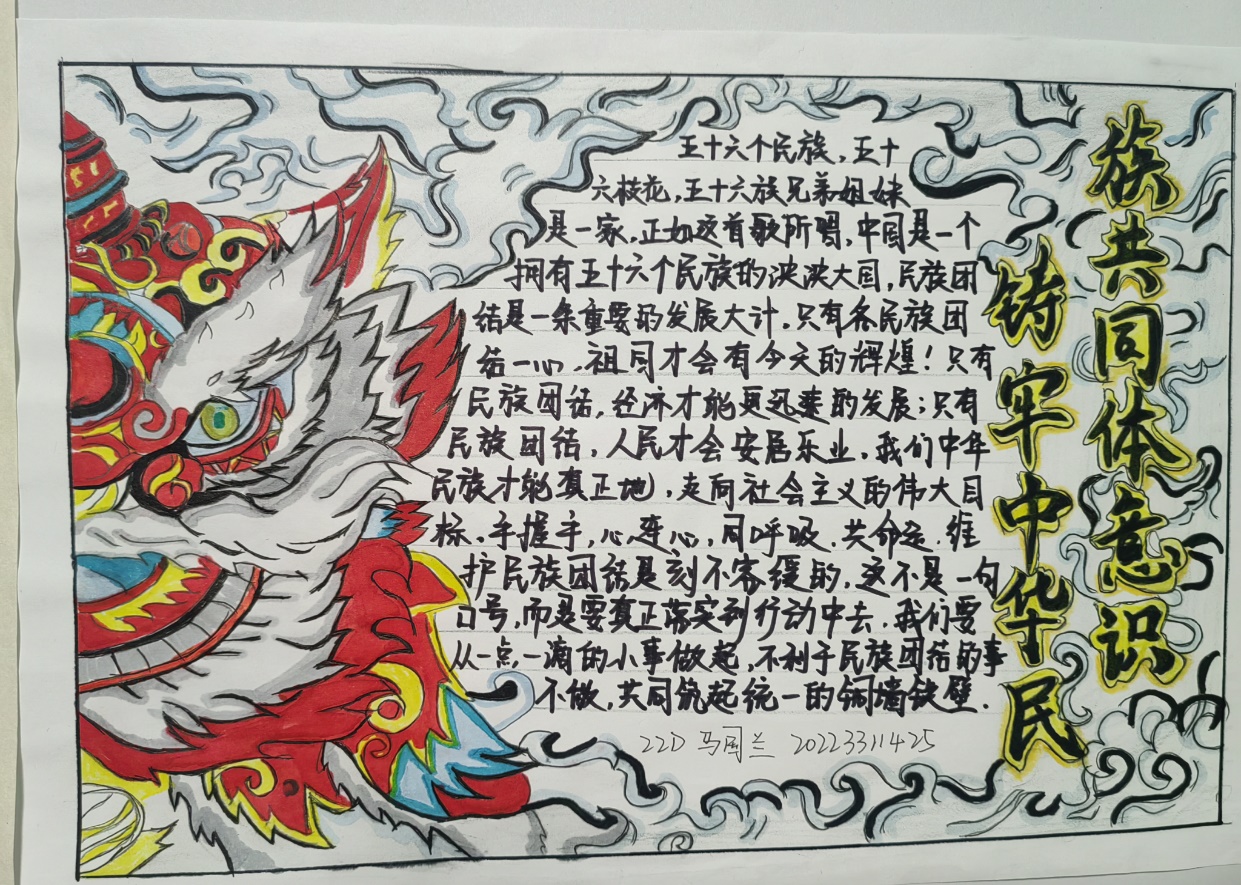 铸牢中华民
族共同体意识
五十六个民族，五十
六枝花，五十六族兄弟姐妹
是一家，正如这首歌所唱，中国是一个
拥有五十六个民族的泱泱大国，民族团
结是一条重要的发展大计，只有各民族团
结一心，祖国才会有今天的辉煌！只有
民族团结，经济才能更迅速的发展；只有
民族团结，人民才会安居乐业，我们中华
民族才能真正地，走向社会主义的伟大目
标，手握手，心连心，同呼吸，共命运，维
护民族团结是刻不容缓的，这不是一句
口号，而是要真正落实到行动中去，我们要
从一点一滴的小事做起，不利于民族团结的事
不做，共同筑起统一的铜墙铁壁．
22D 马国兰 20223311425